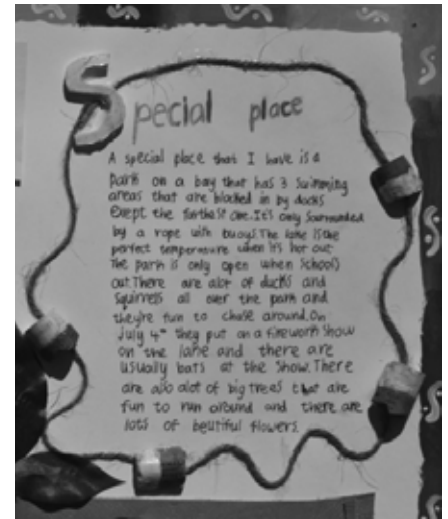 Special place
A special place that I have is a
park on a bay that has 3 swimming
areas that are blocked in by docks
Exept the farthest one. It's only sourrounded
by a rope with buoys. The lake is the
perfect temperature when it's hot out.
The park is only open when school's
out. There are alot of ducks and
squirrels all over the park and
they're fun to chase around. On
July 4th they put on a firework show
on the lake and there are
usually bats at the show. There
are also alot of big trees that are
fun to run around and there are
lots of beutiful flowers.